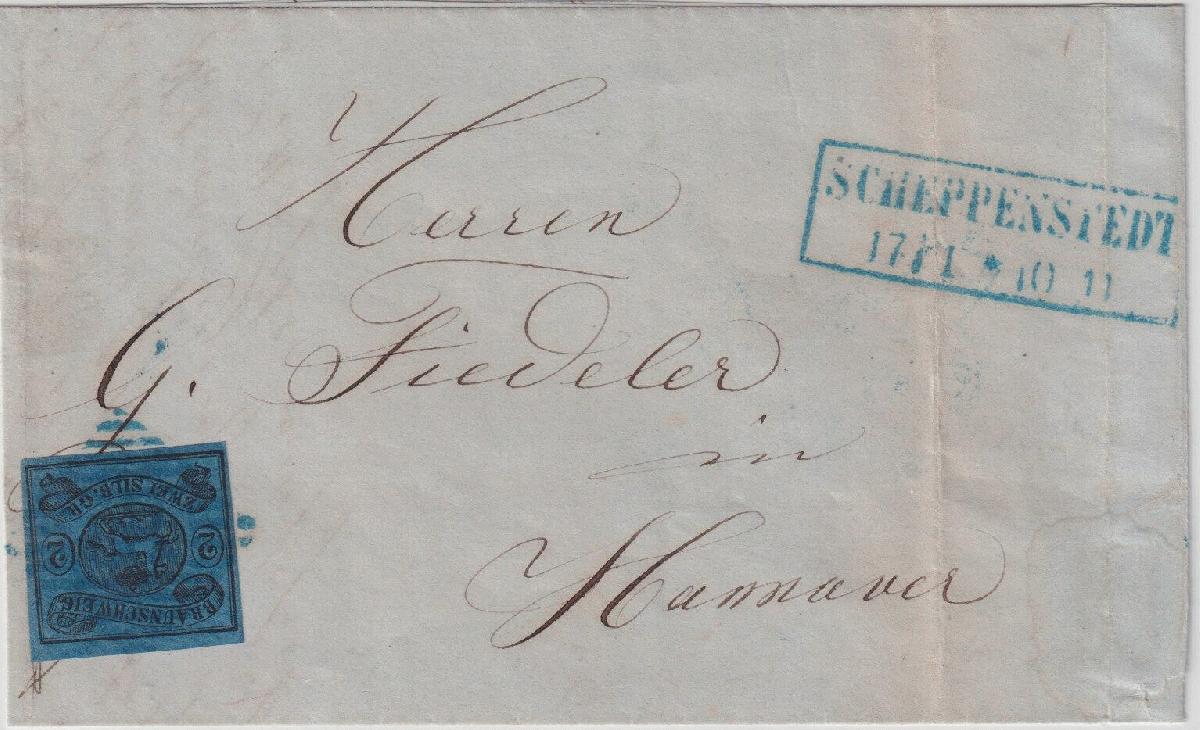 Herren
SCHEPPENSTEDT
10 11
G. Fiedeler
in
Hannover
ZWEI SILB.GR.
2 2
BRAUNSCHWEIG